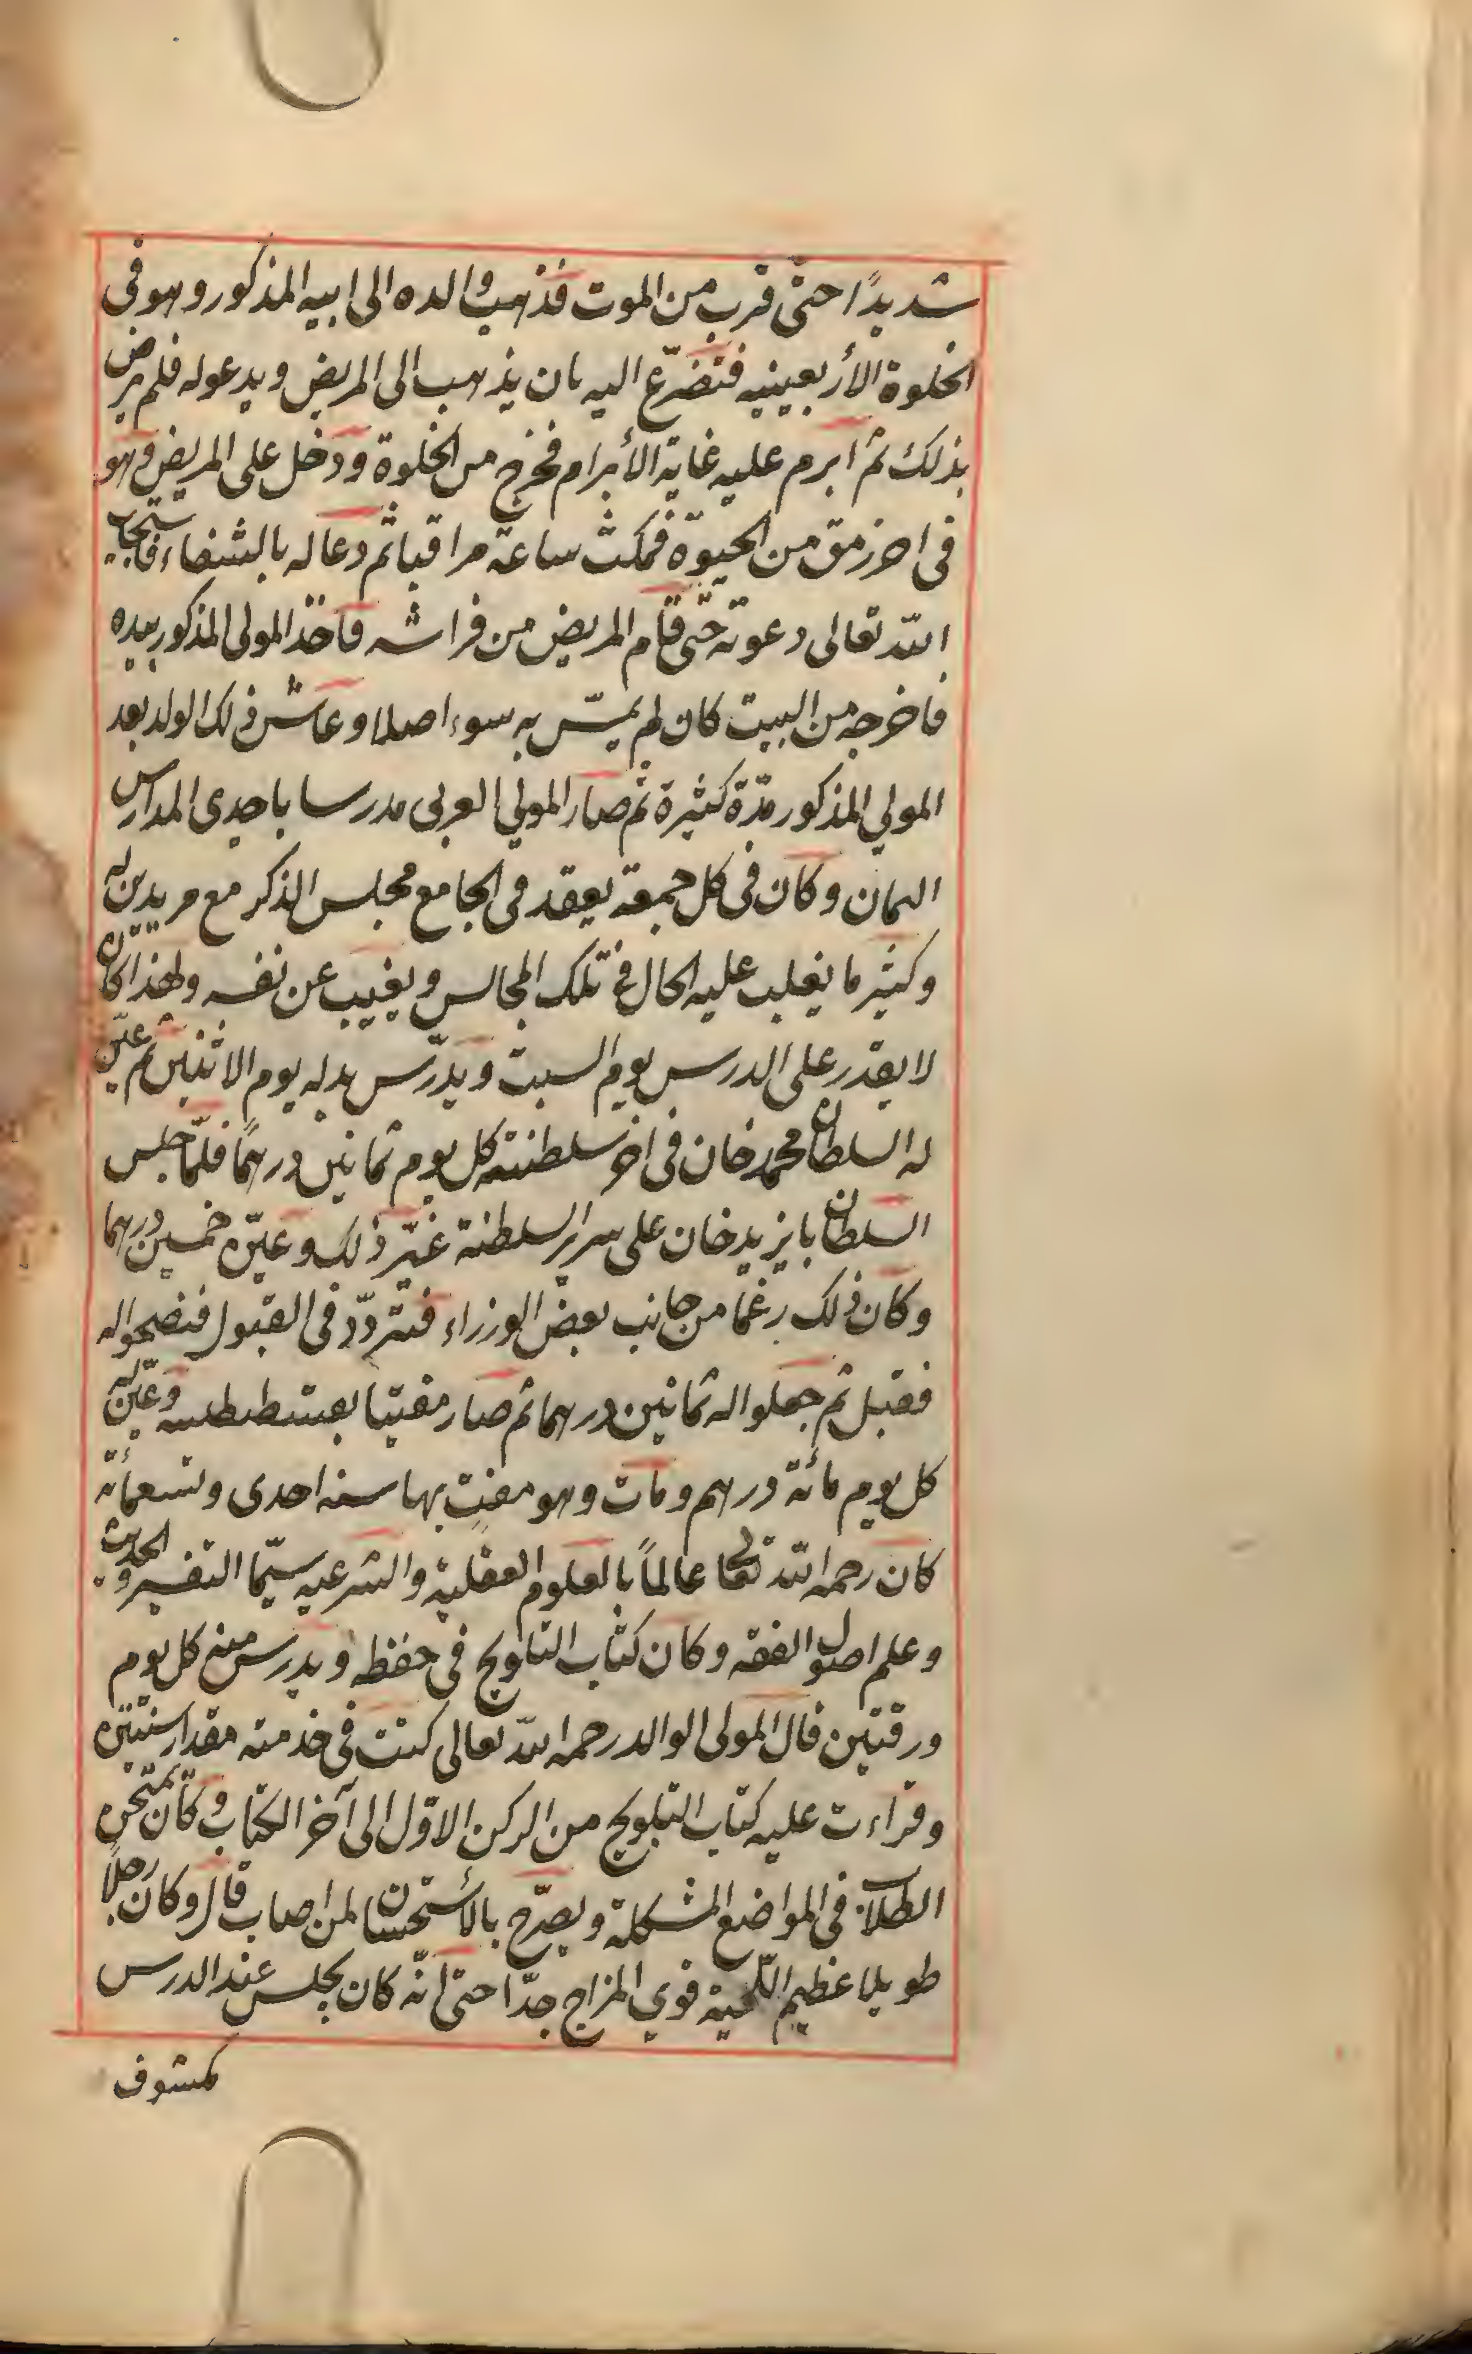 شديدًا حتى قرب من الموت فذهب والده الى ابيه المذكور وهو فى
الخلوة الأربعينيه فتضرّع اليه بان يذهب الى المريض ويدعوله فلم يرض
بذلك ثم ابرم عليه غاية الأبرام فخرج من الخلوة ودخل على المريض وهو
فى اخر رمق من الحيوة فمكث ساعة مراقبا ثم دعا له بالشفاء فاستجاب
الله تعالى دعوته حتى قام المريض من فراشه فاخذ المولى المذكور بيده
فاخرجه من البيت كان لم يمسّ به سوء اصلا وعاش ذلك الولد بعد
المولي المذكور مدّة كثيرة ثم صار المولي العربى مدرسا باحدى المدارس
الثمان وكان فى كل جمعة يعقد فى الجامع مجلس الذكر مع مريدين له
وكثير ما يغلب عليه الحال فى تلك المجالس ويغيب عن نفسه ولهذا كان
لا يقدر على الدرس يوم السبت ويدرّس بدله يوم الاثنين ثم عيّن
له السلطان محمد خان فى اخر سلطنته كل يوم ثمانين درهمًا فلمّا جلس
السلطان بايزيد خان على سرير السلطنة غيّر ذلك وعيّن خمسين درهما
وكان ذلك رغما من جانب بعض الوزراء فتردّد فى القبول فنصحوا له
فقبل ثم جعلوا له ثمانين درهما ثم صار مفتيا بقسطنطنيه وعيّن له
كل يوم مائة درهم ومات وهو مفتٍ بها سنه احدى وتسعمائة
كان رحمه الله تعالى عالمًا بالعلوم العقلية والشرعيه سيّما التفسير والحديث
وعلم اصول الفقه وكان كتاب التلويح فى حفظه ويدرس منه كل يوم
ورقتين قال المولى الوالد رحمه الله تعالى كنت فى خدمته مقدار سنتين
وقراءت عليه كتاب التلويح من الركن الاوّل الى آخر الكتاب وكان يمتحن
الطلاب فى المواضع المشكلة ويصرّح بالأستحسان لمن اصاب قال وكان رجلًا
طويلا عظيم اللّحية قوي المزاج جدّا حتى انّه كان يجلس عند الدرس
مكشوف